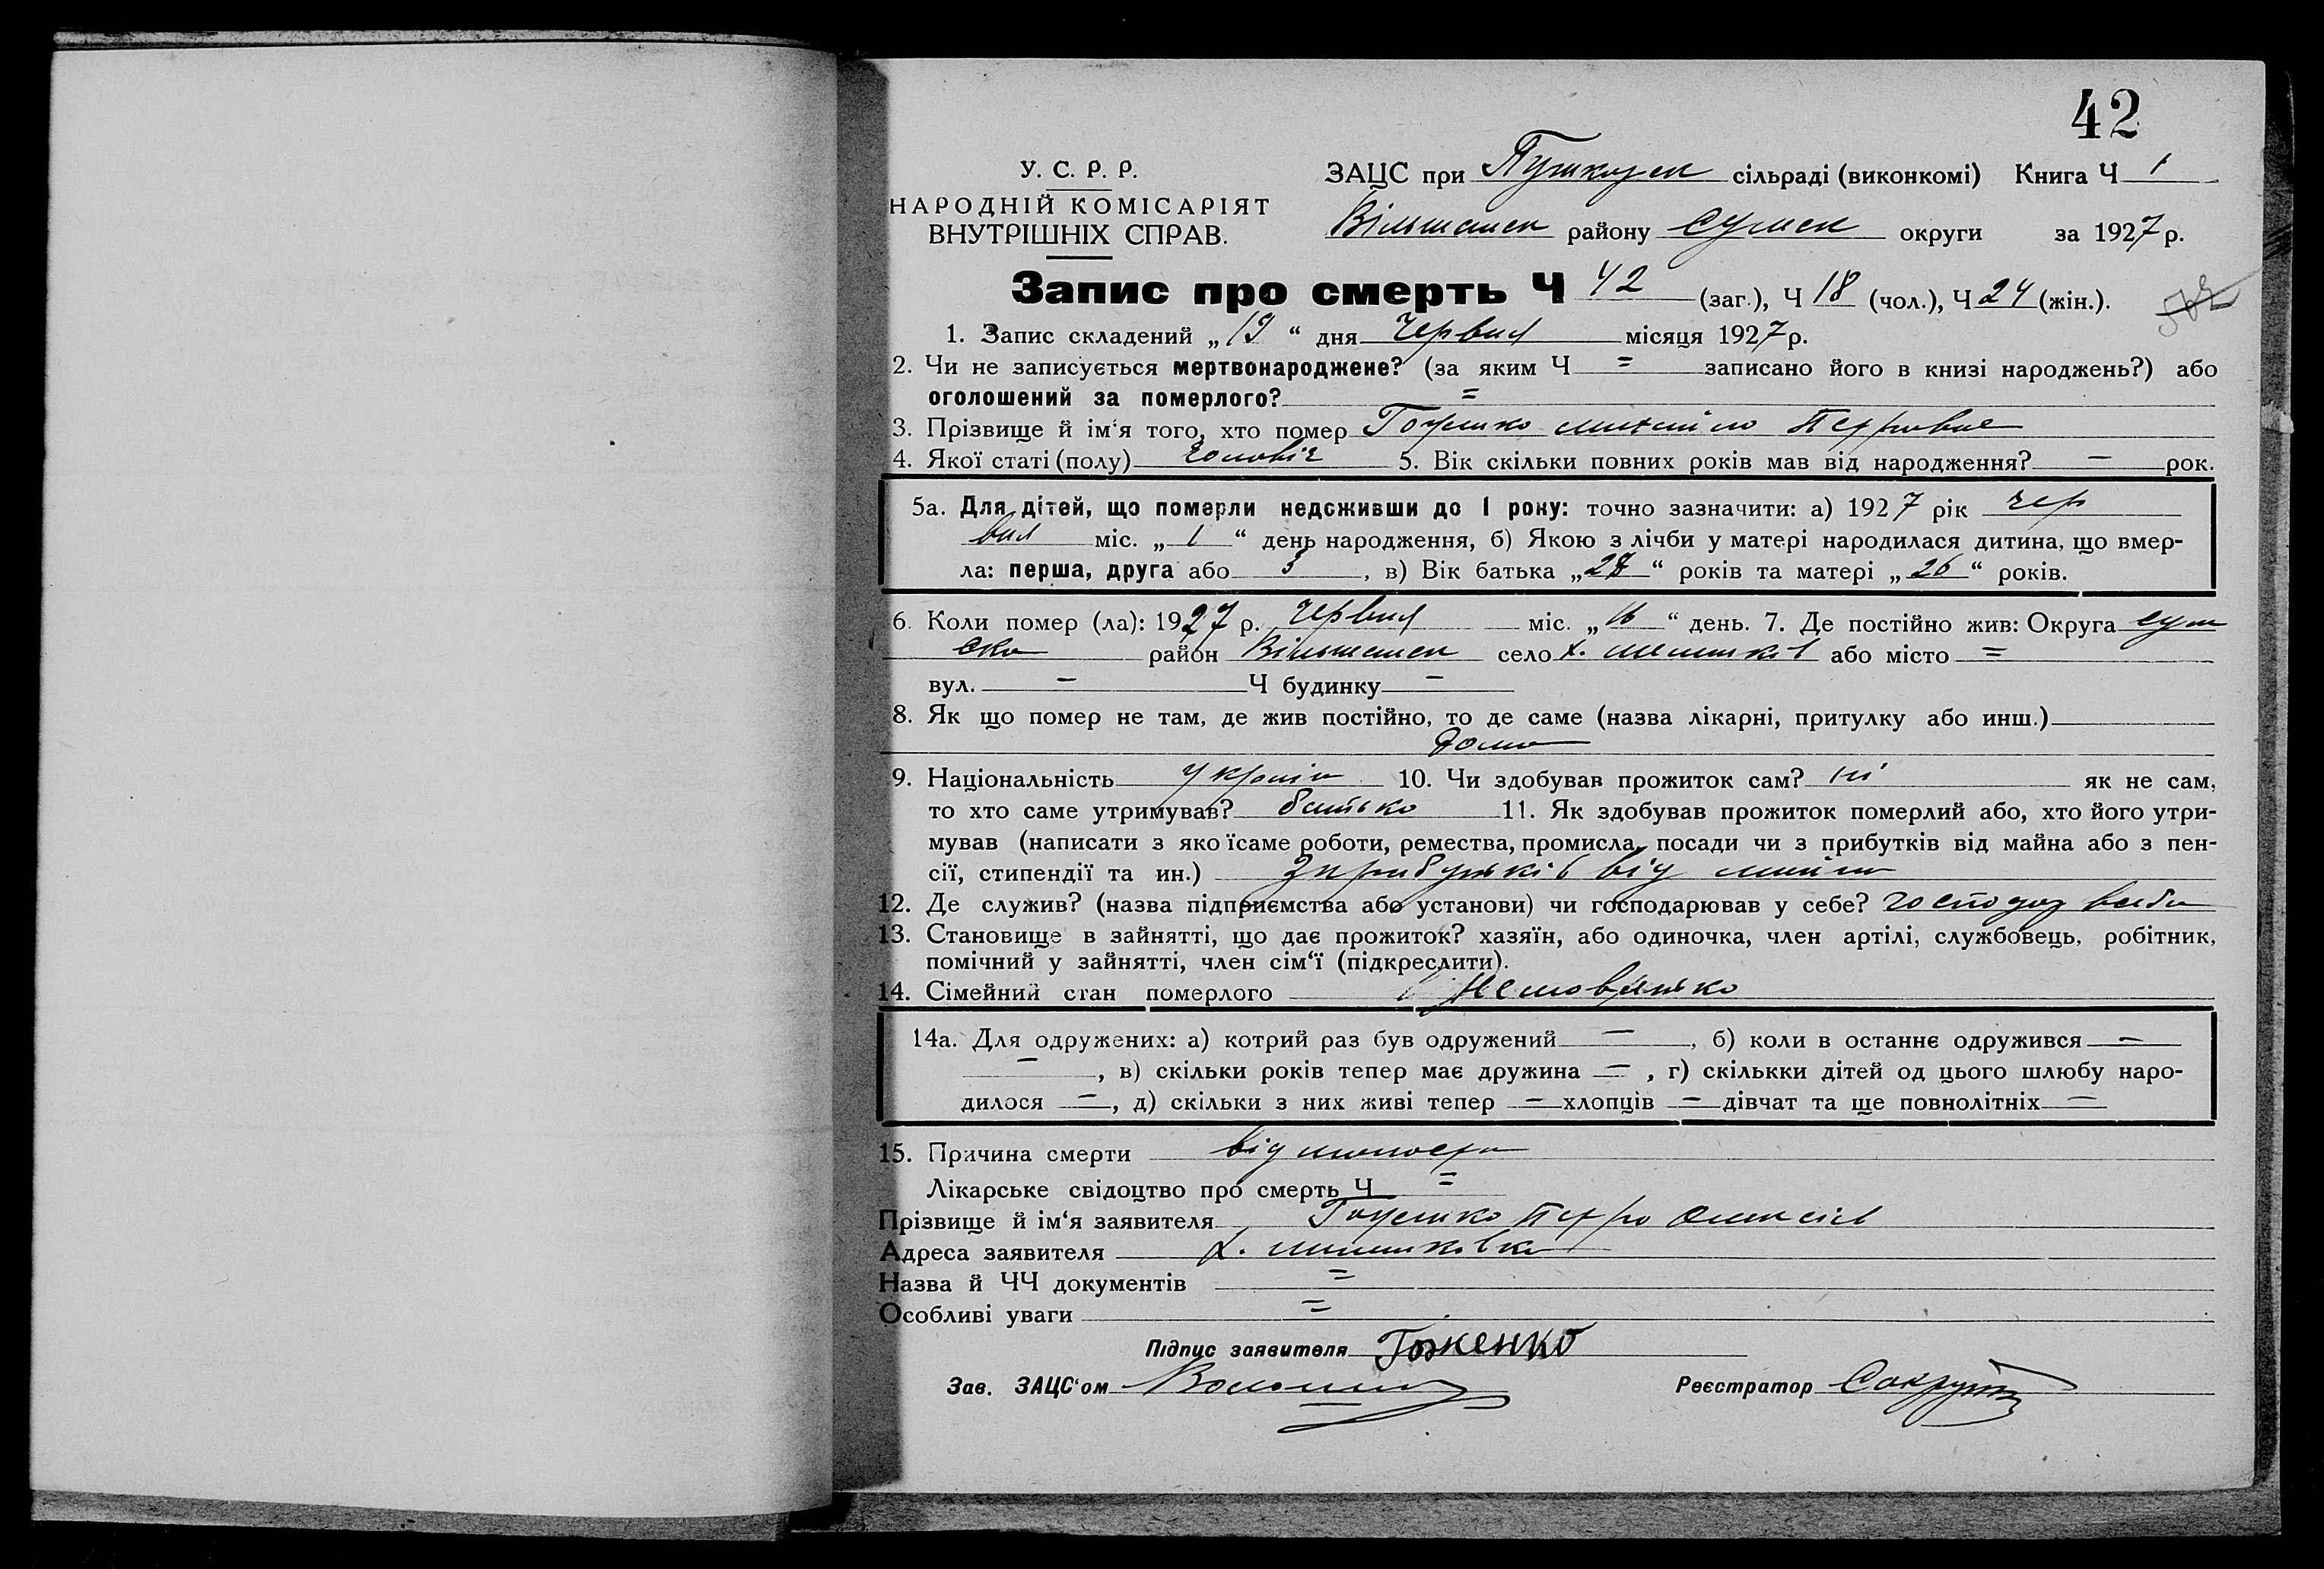 42
У. С. Р. Р.
НАРОДНІЙ КОМІСАРІЯТ
ВНУТРІШНІХ СПРАВ.
ЗАЦС при сільраді (виконкомі) Книга Ч 1
Вільшанск району Сумск округи за 1927 р.
Запис про смерть Ч 42 (заг.), Ч 18 (чол.), Ч 24 (жін.).
1. Запис складений „19“ дня червня місяця 1927 р.
2. Чи не записується мертвонароджене? (за яким Ч = записано його в книзі народжень?) або
оголошений за померлого? =
3. Прізвище й ім‘я того, хто помер Михайло Петрович
4. Якої статі (полу) чоловіч 5. Вік скільки повних років мав від народження? — рок.
5а. Для дітей, що померли недоживши до 1 року: точно зазначити: а) 1927 рік чер
вня міс. „1“ день народження, б) Якою з лічби у матері народилася дитина, що вмер-
ла: перша, друга або 3, в) Вік батька „28“ років та матері „26“ років.
6. Коли помер (ла): 1927 р. червня міс. „16“ день. 7. Де постійно жив: Округа Сум
ска район Вільшанск село х. або місто =
вул. — Ч будинку —
8. Як що помер не там, де жив постійно, то де саме (назва лікарні, притулку або инш.)
дома
9. Національність україн 10. Чи здобував прожиток сам? ні як не сам,
то хто саме утримував? батько 11. Як здобував прожиток померлий або, хто його утри-
мував (написати з якоїсаме роботи, ремества, промисла, посади чи з прибутків від майна або з пен-
сії, стипендії та ин.) з прибутків від майна
12. Де служив? (назва підприємства або установи) чи господарював у себе? господар
13. Становище в зайнятті, що дає прожиток? хазяїн, або одиночка, член артілі, службовець, робітник,
помічний у зайнятті, член сім‘ї (підкреслити).
14. Сімейний стан померлого Немовлятко
14а. Для одружених: а) котрий раз був одружений —, б) коли в останнє одружився —
—, в) скільки років тепер має дружина —, г) скількки дітей од цього шлюбу наро-
дилося —, д) скільки з них живі тепер — хлопців — дівчат та ще повнолітніх —
15. Причина смерти від
Лікарське свідоцтво про смерть Ч =
Прізвище й ім‘я заявителя Петро
Адреса заявителя х.
Назва й ЧЧ документів =
Особливі уваги =
Підпис заявителя Гоженко
Зав. ЗАЦС‘ом
Реєстратор